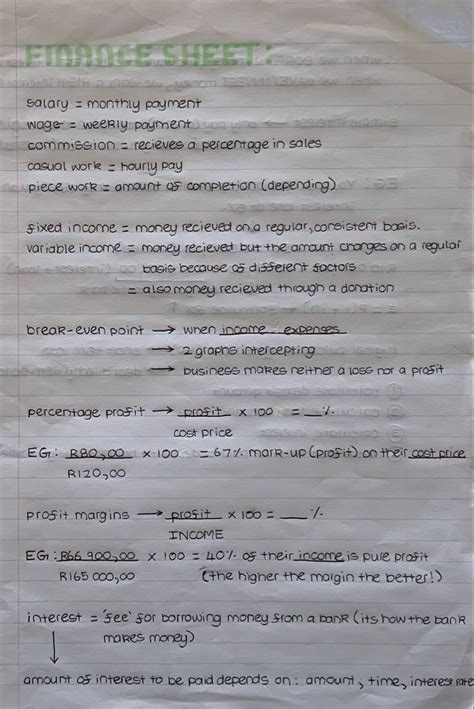 FINANCE SHEET:
salary = monthly payment
wage = weekly payment
commission = recieves a percentage in sales
casual work = hourly pay
piece work = amount of completion (depending)
fixed income = money recieved on a regular, consistent basis.
variable income = money recieved but the amount changes on a regular
basis because of different factors
= also money recieved through a donation
break-even point → when income = expenses
→ 2 graphs intercepting
→ business makes neither a loss nor a profit
percentage profit → profit × 100 = __%
cost price
EG: R80,00 × 100 = 67% mark-up (profit) on their cost price
R120,00
profit margins → profit × 100 = __%
INCOME
EG: R66 900,00 × 100 = 40% of their income is pure profit
R165 000,00 (the higher the margin the better!)
interest = 'fee' for borrowing money from a bank (its how the bank
makes money)
↓
amount of interest to be paid depends on: amount, time, interest rate